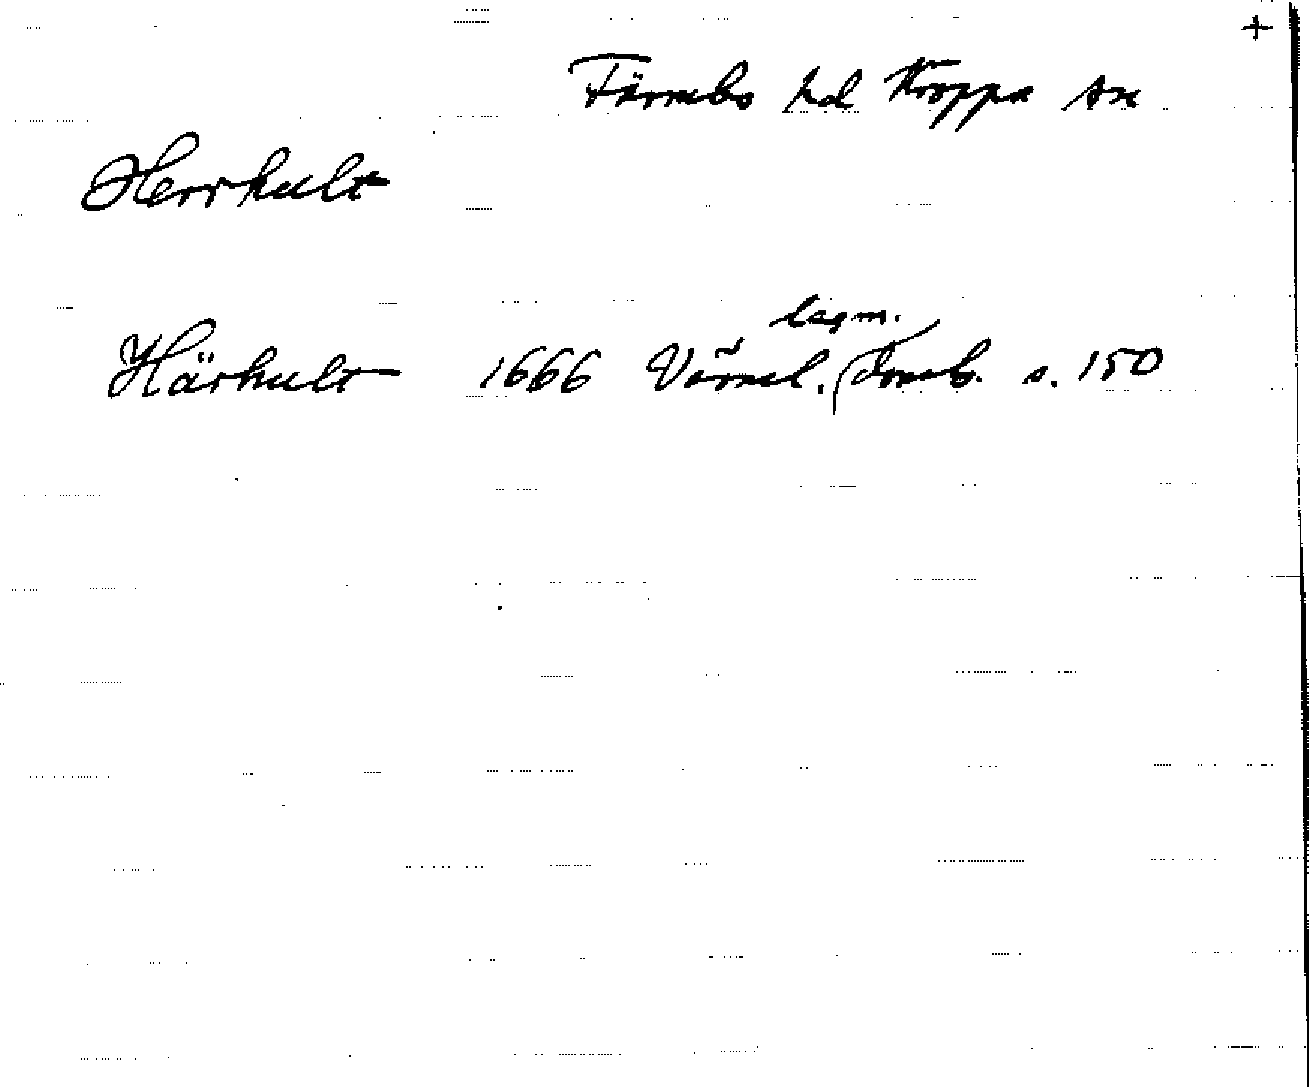 +
Färnebo hd Kroppa sn
Herrhult
Härhult 1666 Värml. lagm. Domb. s. 150